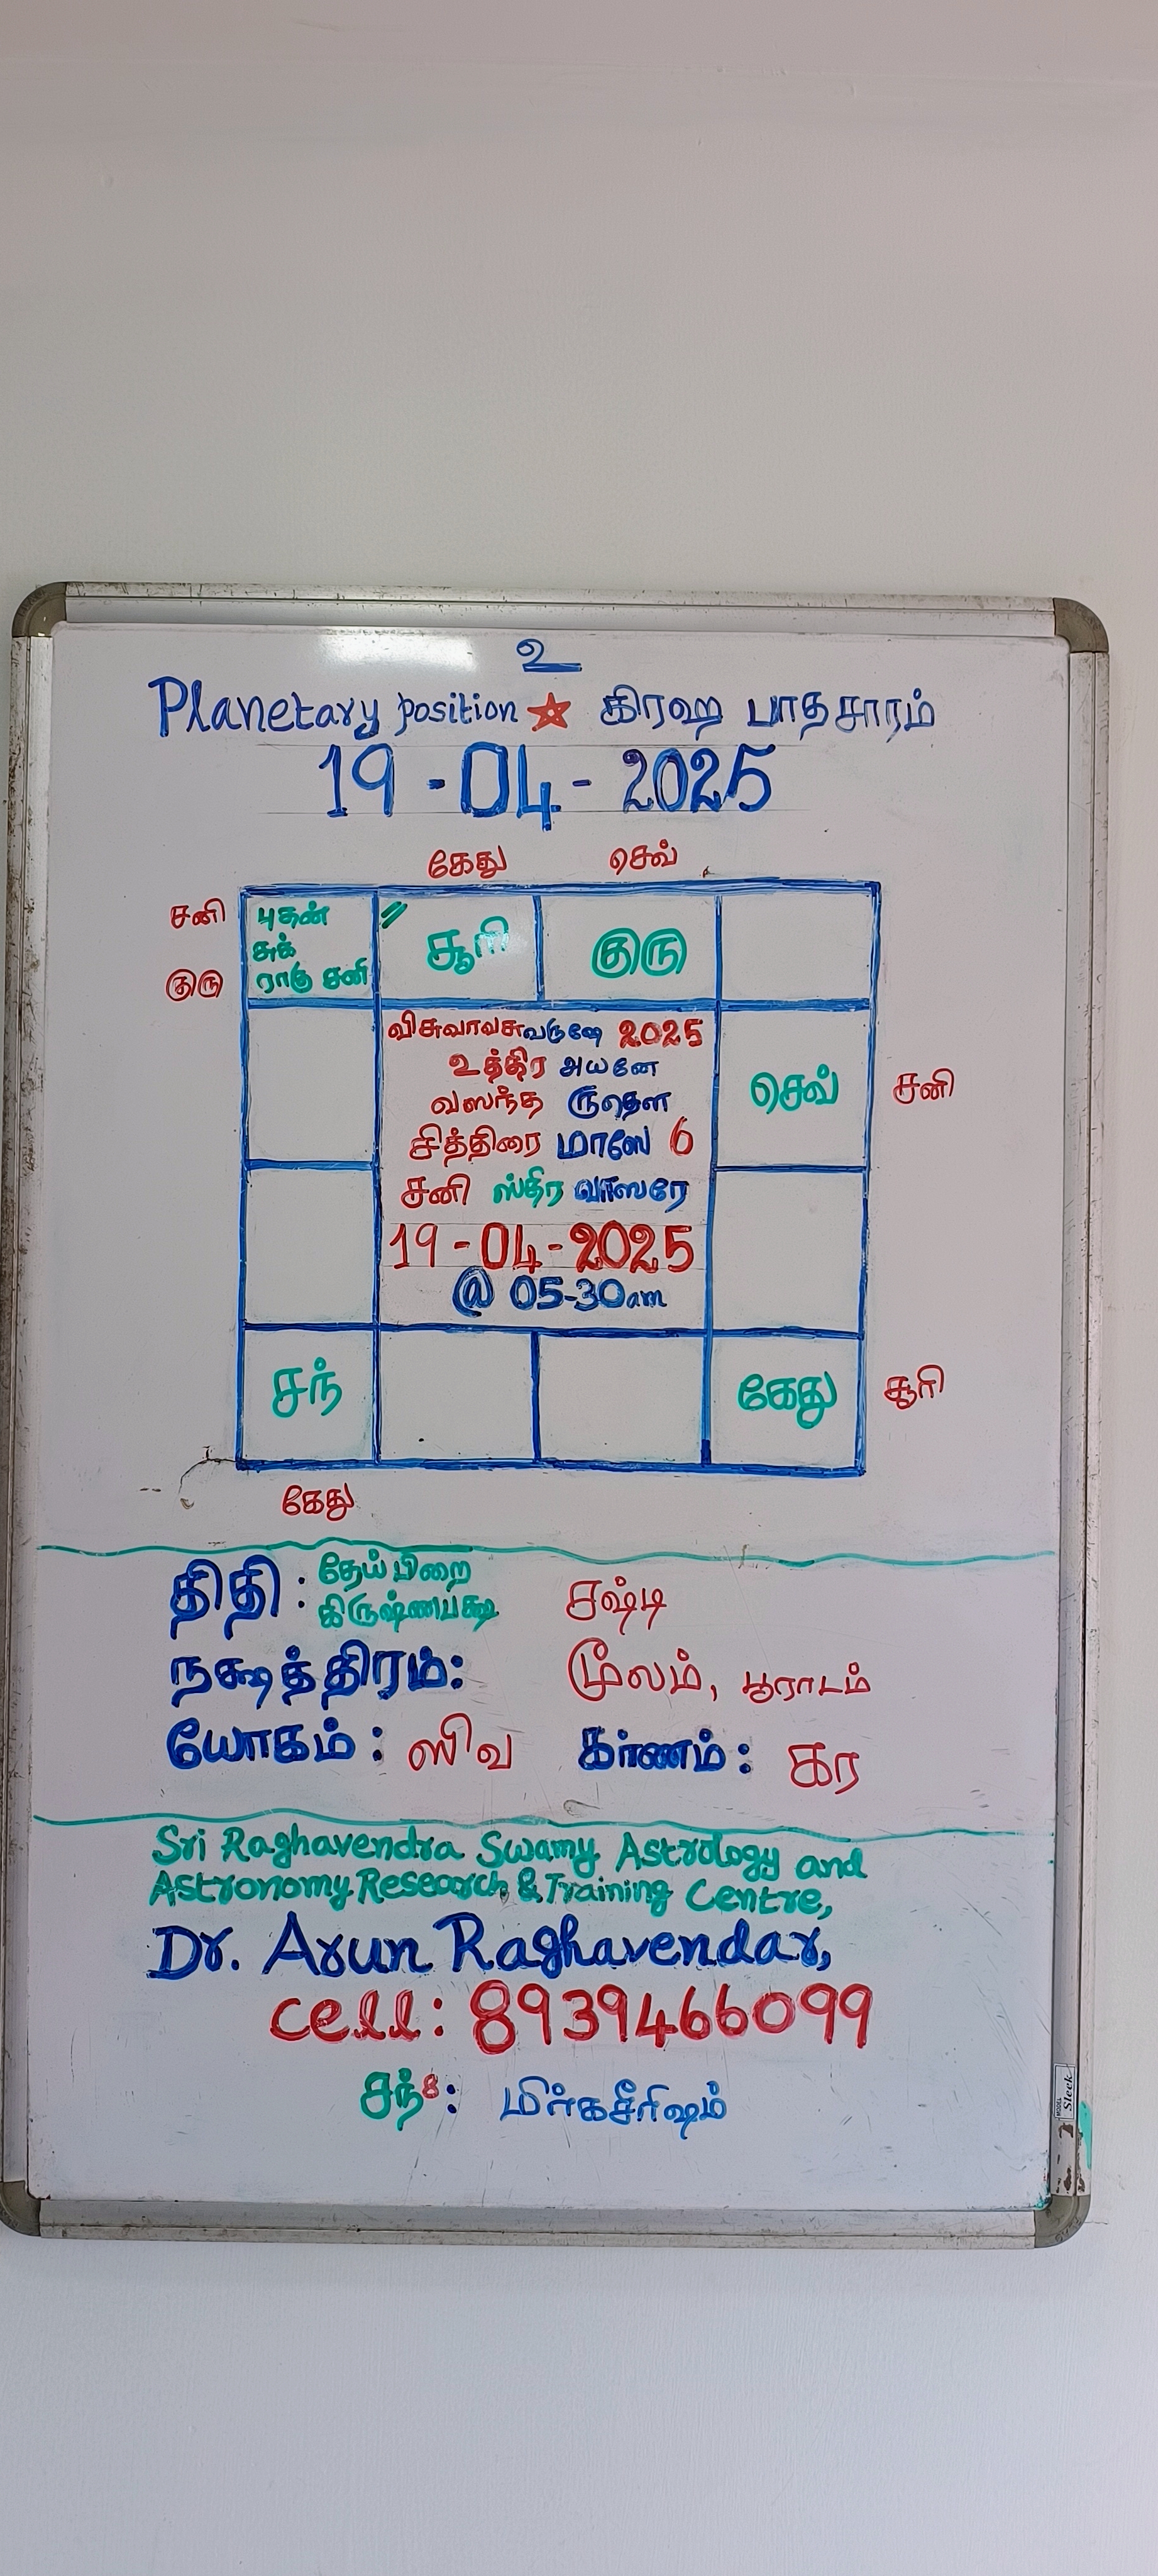 உ
Planetary position ★ கிரஹ பாதசாரம்
19-04-2025
கேது செவ்
சனி
குரு
புதன்
சுக்
ராகு சனி
சூரி
குரு
விசுவாவசுவருஷே 2025
உத்திர அயனே
வஸந்த ருதௌ
சித்திரை மாஸே 6
சனி ஸ்திர வாஸரே
19-04-2025
@ 05-30am
செவ்
சனி
சந்
கேது
சூரி
கேது
திதி : தேய்பிறை
கிருஷ்ணபக்ஷ சஷ்டி
நக்ஷத்திரம்: மூலம், பூராடம்
யோகம் : ஸிவ கர்ணம் : கர
Sri Raghavendra Swamy Astrology and
Astronomy Research & Training Centre,
Dr. Arun Raghavendar,
cell: 8939466099
சந்8: மிர்கசீரிஷம்
Sleek